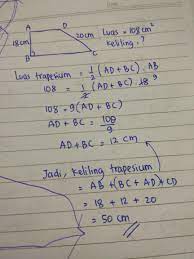 A D
18cm 20cm Luas = 108 cm²
Keliling ?
B C
Luas trapesium = 1/2 (AD + BC) . AB
108 = 1/2 (AD + BC) . 18 9
108 = 9(AD + BC)
AD + BC = 108/9
AD + BC = 12 cm
Jadi, Keliling trapesium
= AB + (BC + AD) + CD
= 18 + 12 + 20
= 50 cm